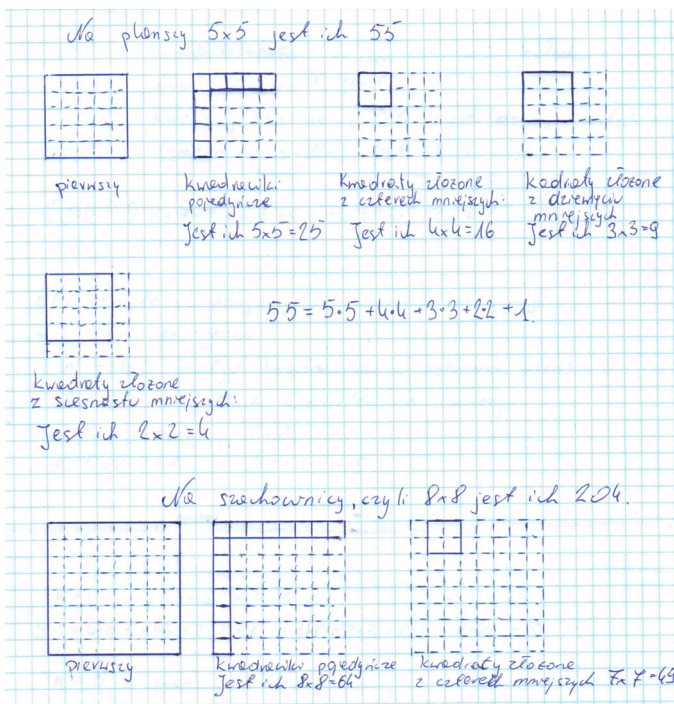 Na planszy 5x5 jest ich 55
pierwszy
kwadraciki
pojedyncze
Jest ich 5x5=25
Kwadraty złożone
z czterech mniejszych:
Jest ich 4x4=16
Kadraty złożone
z dziewięciu
mniejszych
Jest ich 3x3=9
55 = 5·5+4·4+3·3+2·2+1.
kwadraty złożone
z szesnastu mniejszych:
Jest ich 2x2=4
Na szachownicy, czyli 8x8 jest ich 204.
pierwszy
kwadraciki pojedyncze
Jest ich 8x8=64
kwadraty złożone
z czterech mniejszych 7x7=49